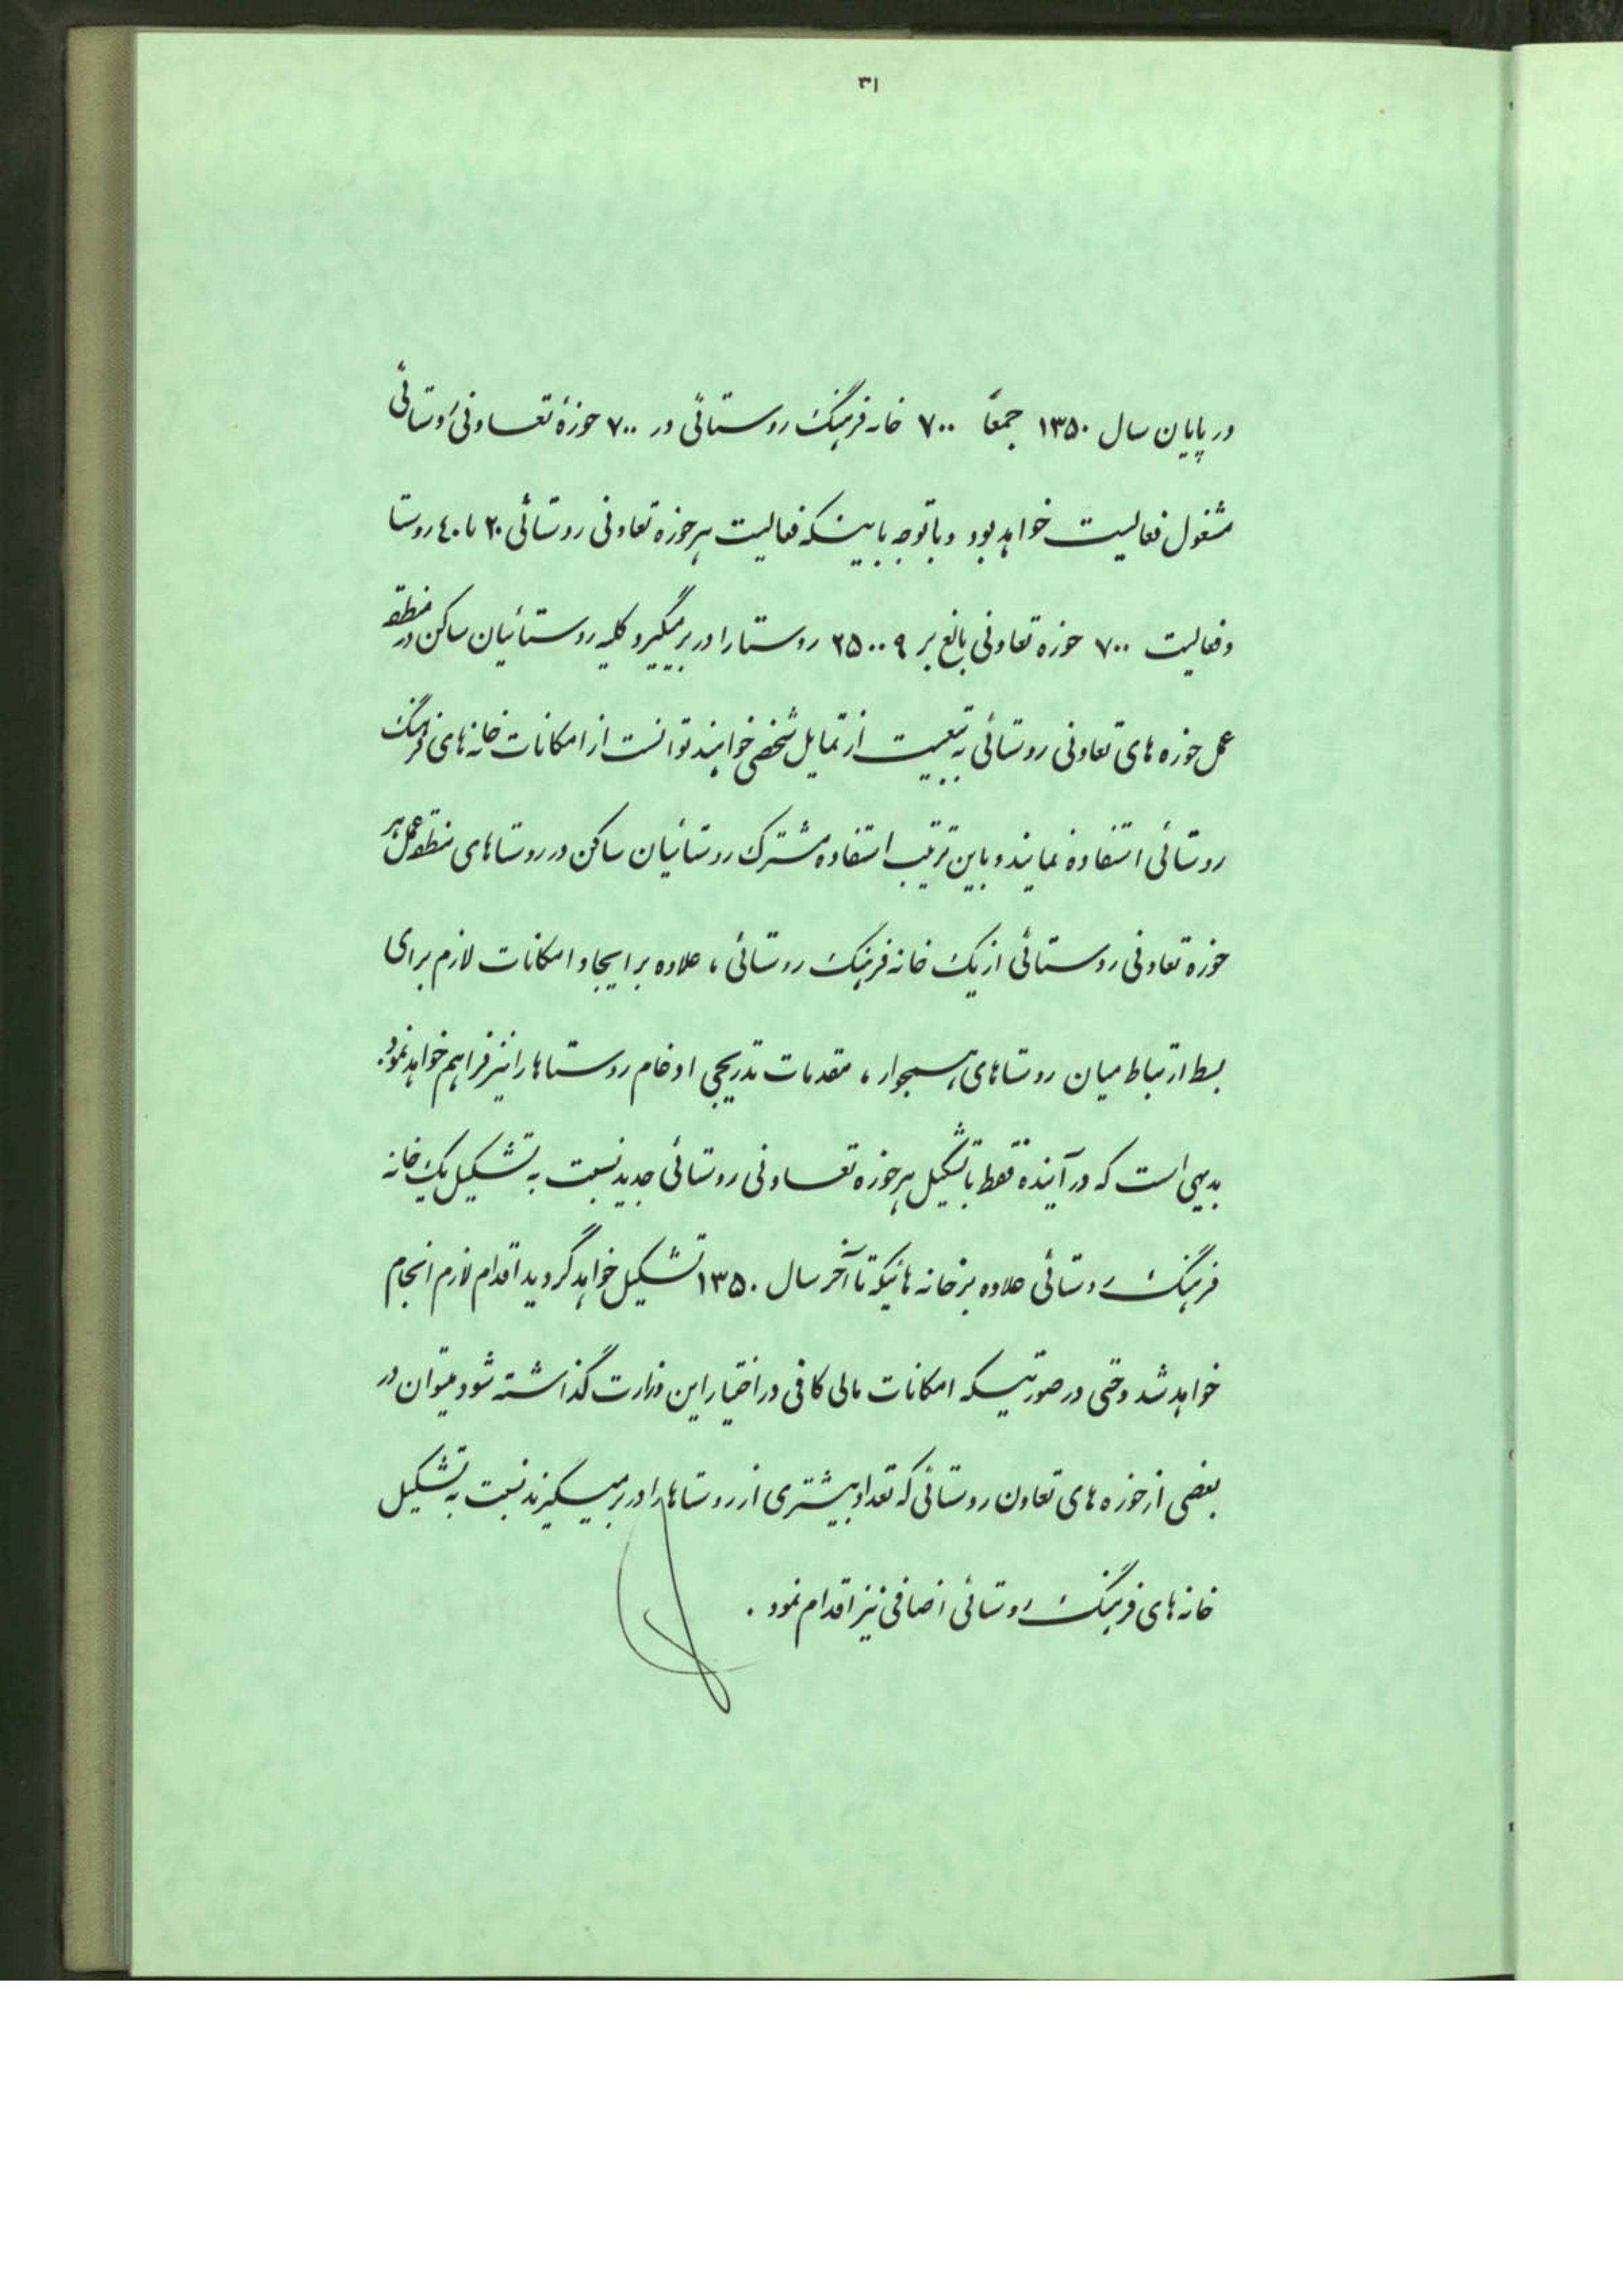 ۳۱
در پایان سال ۱۳۵۰ جمعاً ۷۰۰ خانه فرهنگ روستائی در ۷۰۰ حوزهٔ تعاونی روستائی
مشغول فعالیت خواهد بود و با توجه باینکه فعالیت هر حوزه تعاونی روستائی ۲۰ تا ۴۰ روستا
و فعالیت ۷۰۰ حوزه تعاونی بالغ بر ۲۵۰۰۹ روستا را در بر میگیرد کلیه روستائیان ساکن در منطقه
عمل حوزه های تعاونی روستائی به تبعیت از تمایل شخصی خواهند توانست از امکانات خانه های فرهنگ
روستائی استفاده نمایند و باین ترتیب استفاده مشترک روستائیان ساکن در روستاهای منطقه عمل هر
حوزه تعاونی روستائی از یک خانه فرهنگ روستائی ، علاوه بر ایجاد امکانات لازم برای
بسط ارتباط میان روستاهای همجوار ، مقدمات تدریجی ادغام روستاها را نیز فراهم خواهد نمود.
بدیهی است که در آینده فقط با تشکیل هر حوزه تعاونی روستائی جدید نسبت به تشکیل یک خانه
فرهنگ روستائی علاوه بر خانه هائیکه تا آخر سال ۱۳۵۰ تشکیل خواهد گردید اقدام لازم انجام
خواهد شد و حتی در صورتیکه امکانات مالی کافی در اختیار این وزارت گذاشته شود میتوان در
بعضی از حوزه های تعاون روستائی که تعداد بیشتری از روستاها را در بر میگیرند نسبت به تشکیل
خانه های فرهنگ روستائی اضافی نیز اقدام نمود .